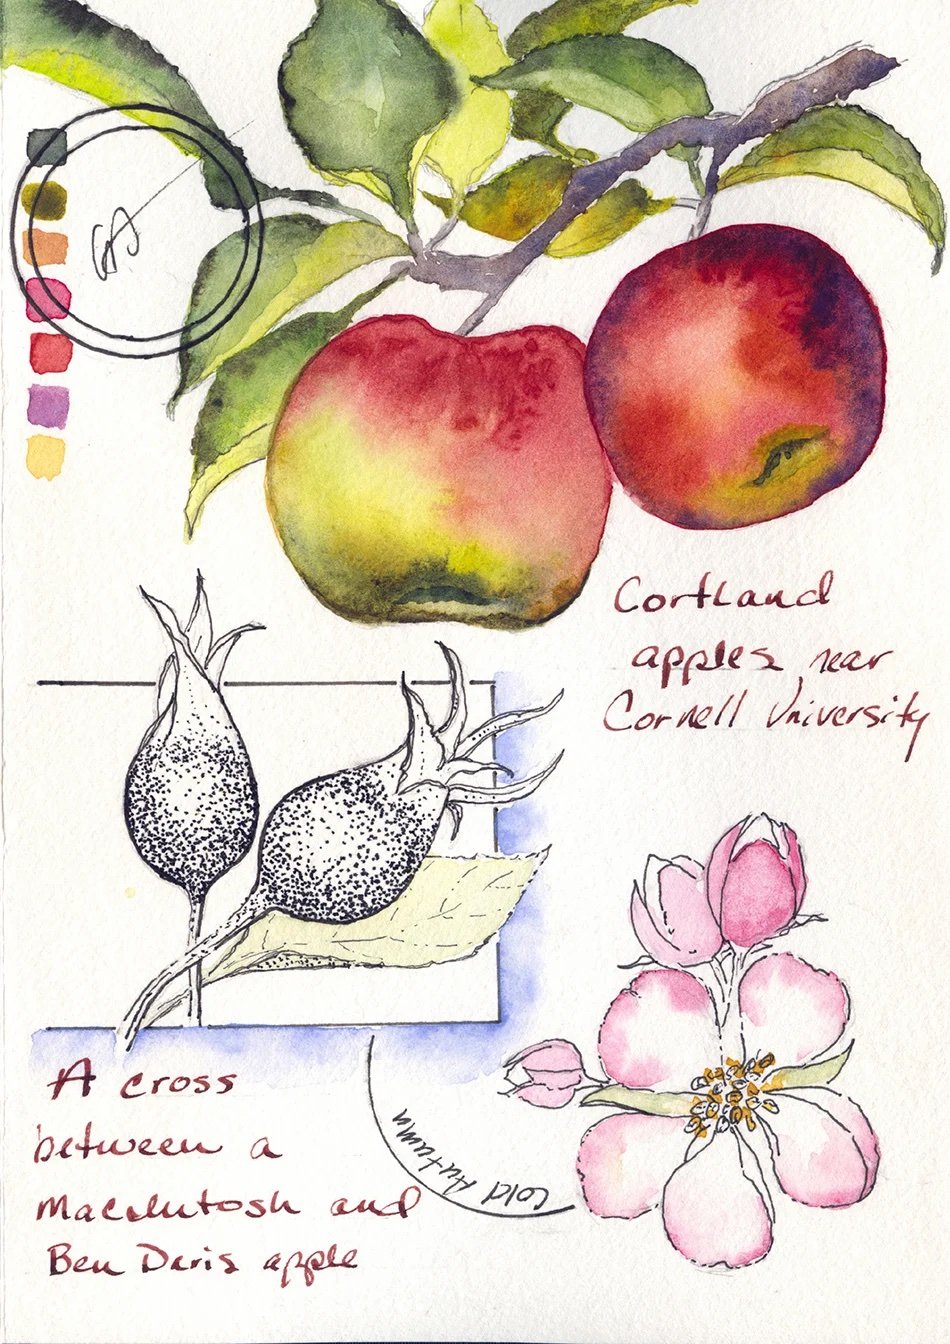 CortLand
apples near
Cornell University
A cross
between a
MacIntosh and
Ben Davis apple
Cold Autumn